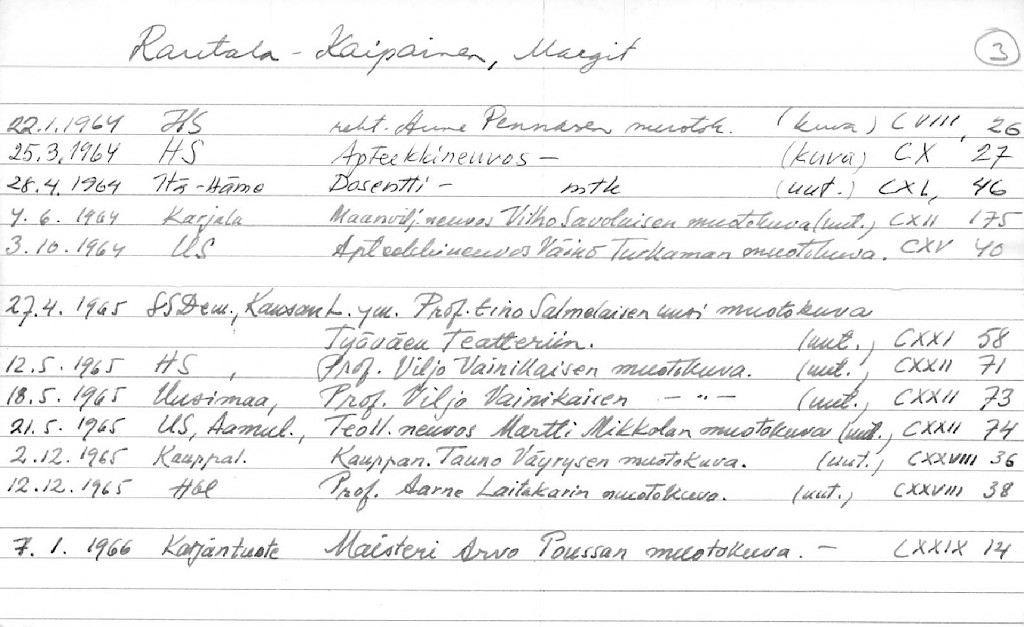 Rautala - Kaipainen, Margit 3
22.1.1964 HS reht. Aune Pennasen muotok. (kuva) CVIII, 26
25.3.1964 HS Apteekkineuvos — (kuva) CX 27
28.4.1964 Itä-Häme Dosentti — mtk (uut.) CXI, 46
4.6.1964 Karjala Maanvilj.neuvos Vilho Savolaisen muotokuva (uut.) CXII 175
3.10.1964 US Apteekkineuvos Väinö Turkaman muotokuva. CXV 40
27.4.1965 SSDem., KansanL. ym. Prof. Eino Salmelaisen uusi muotokuva
Työväen Teatteriin. (uut.) CXXI 58
12.5.1965 HS, Prof. Viljo Vainikaisen muotokuva. (uut.) CXXII 71
18.5.1965 Uusimaa, Prof. Viljo Vainikaisen — " — (uut.) CXXII 73
21.5.1965 US, Aamul., Teoll.neuvos Martti Mikkolan muotokuva (uut.) CXXII 74
2.12.1965 Kauppal. Kauppan. Tauno Väyrysen muotokuva. (uut.) CXXVIII 36
12.12.1965 Hbl Prof. Aarne Laitakarin muotokuva. (uut.) CXXVIII 38
7.1.1966 Karjantuote Maisteri Arvo Poussan muotokuva. — CXXIX 14